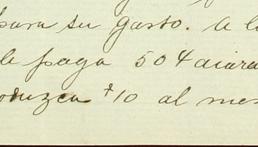 para su gasto. a l
le paga 50¢ diara
oduzca $10 al mes